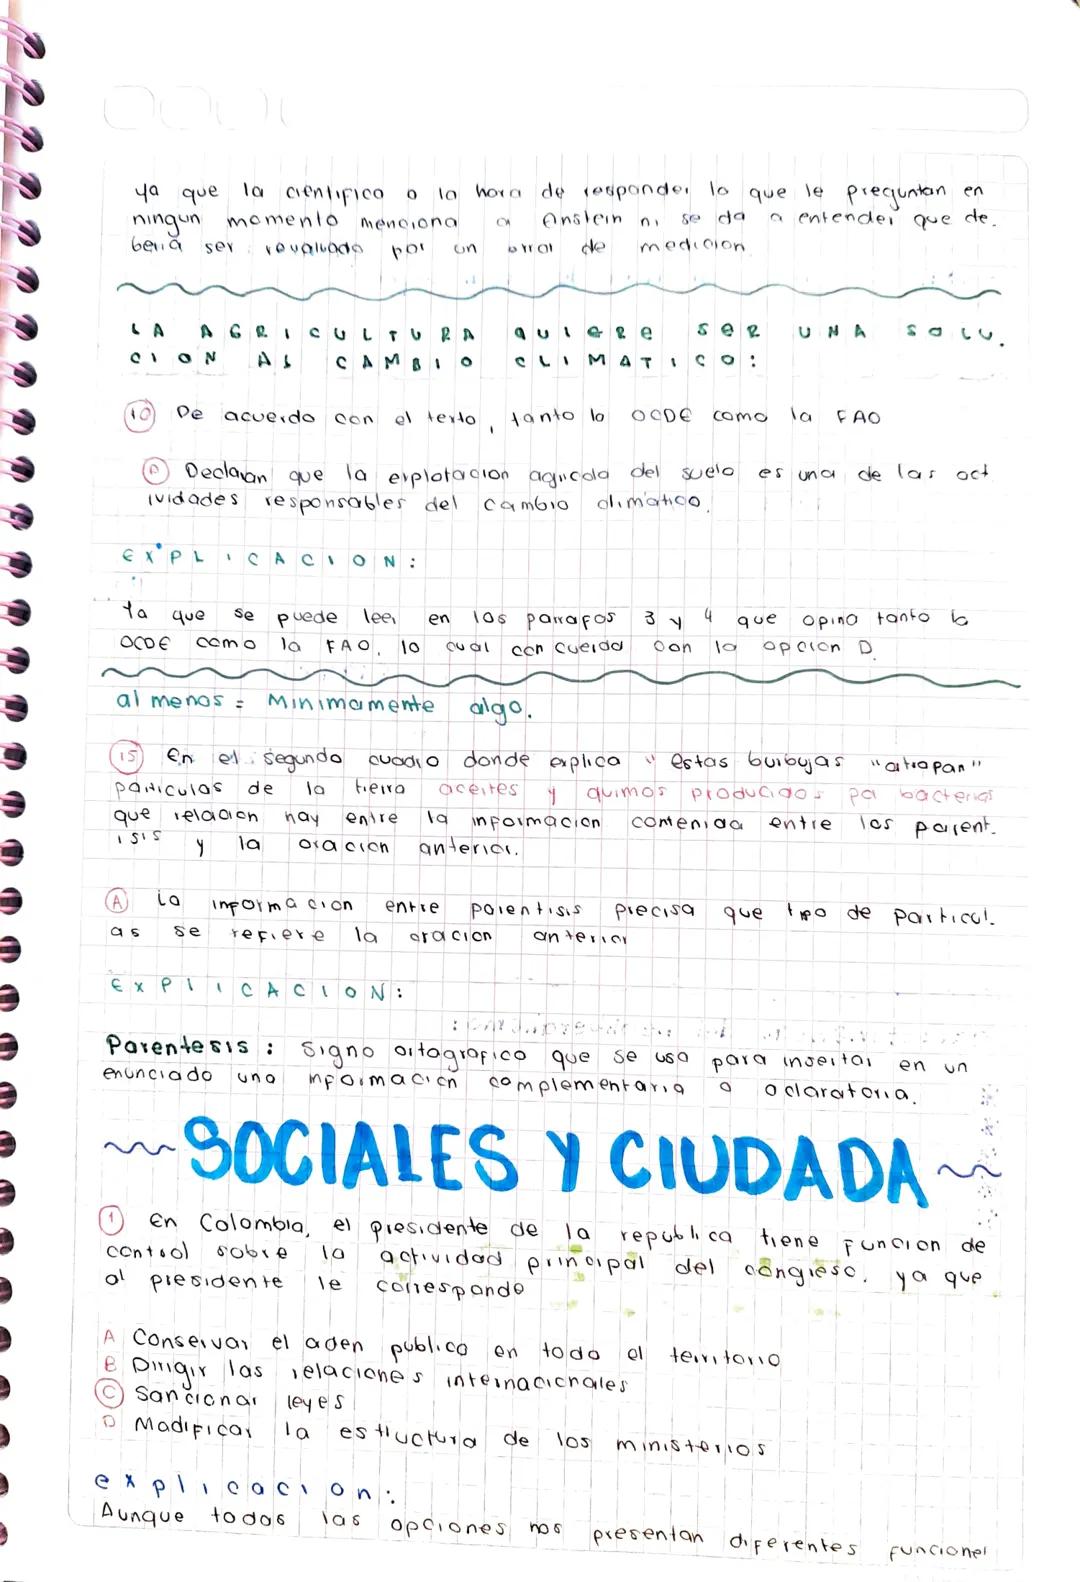 ya que la cientifica a la hora de responder lo que le preguntan en
ningun momento menciona a Einstein ni se da a entender que de.
beria ser revaluado por un error de medicion.
LA AGRICULTURA QUIERE SER UNA SOLU.
CION AL CAMBIO CLIMATICO:
10 De acuerdo con el texto, tanto la OCDE como la FAO
D Declaran que la explotacion agricola del suelo es una de las act
ividades responsables del cambio climatico.
EXPLICACION:
Ya que se puede leer en los parrafos 3 y 4 que opina tanto la
OCDE como la FAO, lo cual concuerda con la opcion D.
al menos = Minimamente algo.
15 En el segundo cuadro donde explica "estas burbujas "atrapan"
particulas de la tierra aceites y quimos producidos por bacterias
que relacion hay entre la informacion contenida entre los parent.
isis y la oracion anterior.
A La informacion entre parentisis precisa que tipo de particul.
as se refiere la oracion anterior
EXPLICACION:
Parentesis: Signo ortografico que se usa para insertar en un
enunciado una informacion complementaria o aclaratoria.
SOCIALES Y CIUDADA
1 En Colombia, el presidente de la republica tiene funcion de
control sobre la actividad principal del congreso, ya que
al presidente le corresponde
A Conservar el orden publico en todo el territorio
B Dirigir las relaciones internacionales
C Sancionar leyes
D Modificar la estructura de los ministerios
explicacion:
Aunque todas las opciones nos presentan diferentes funciones